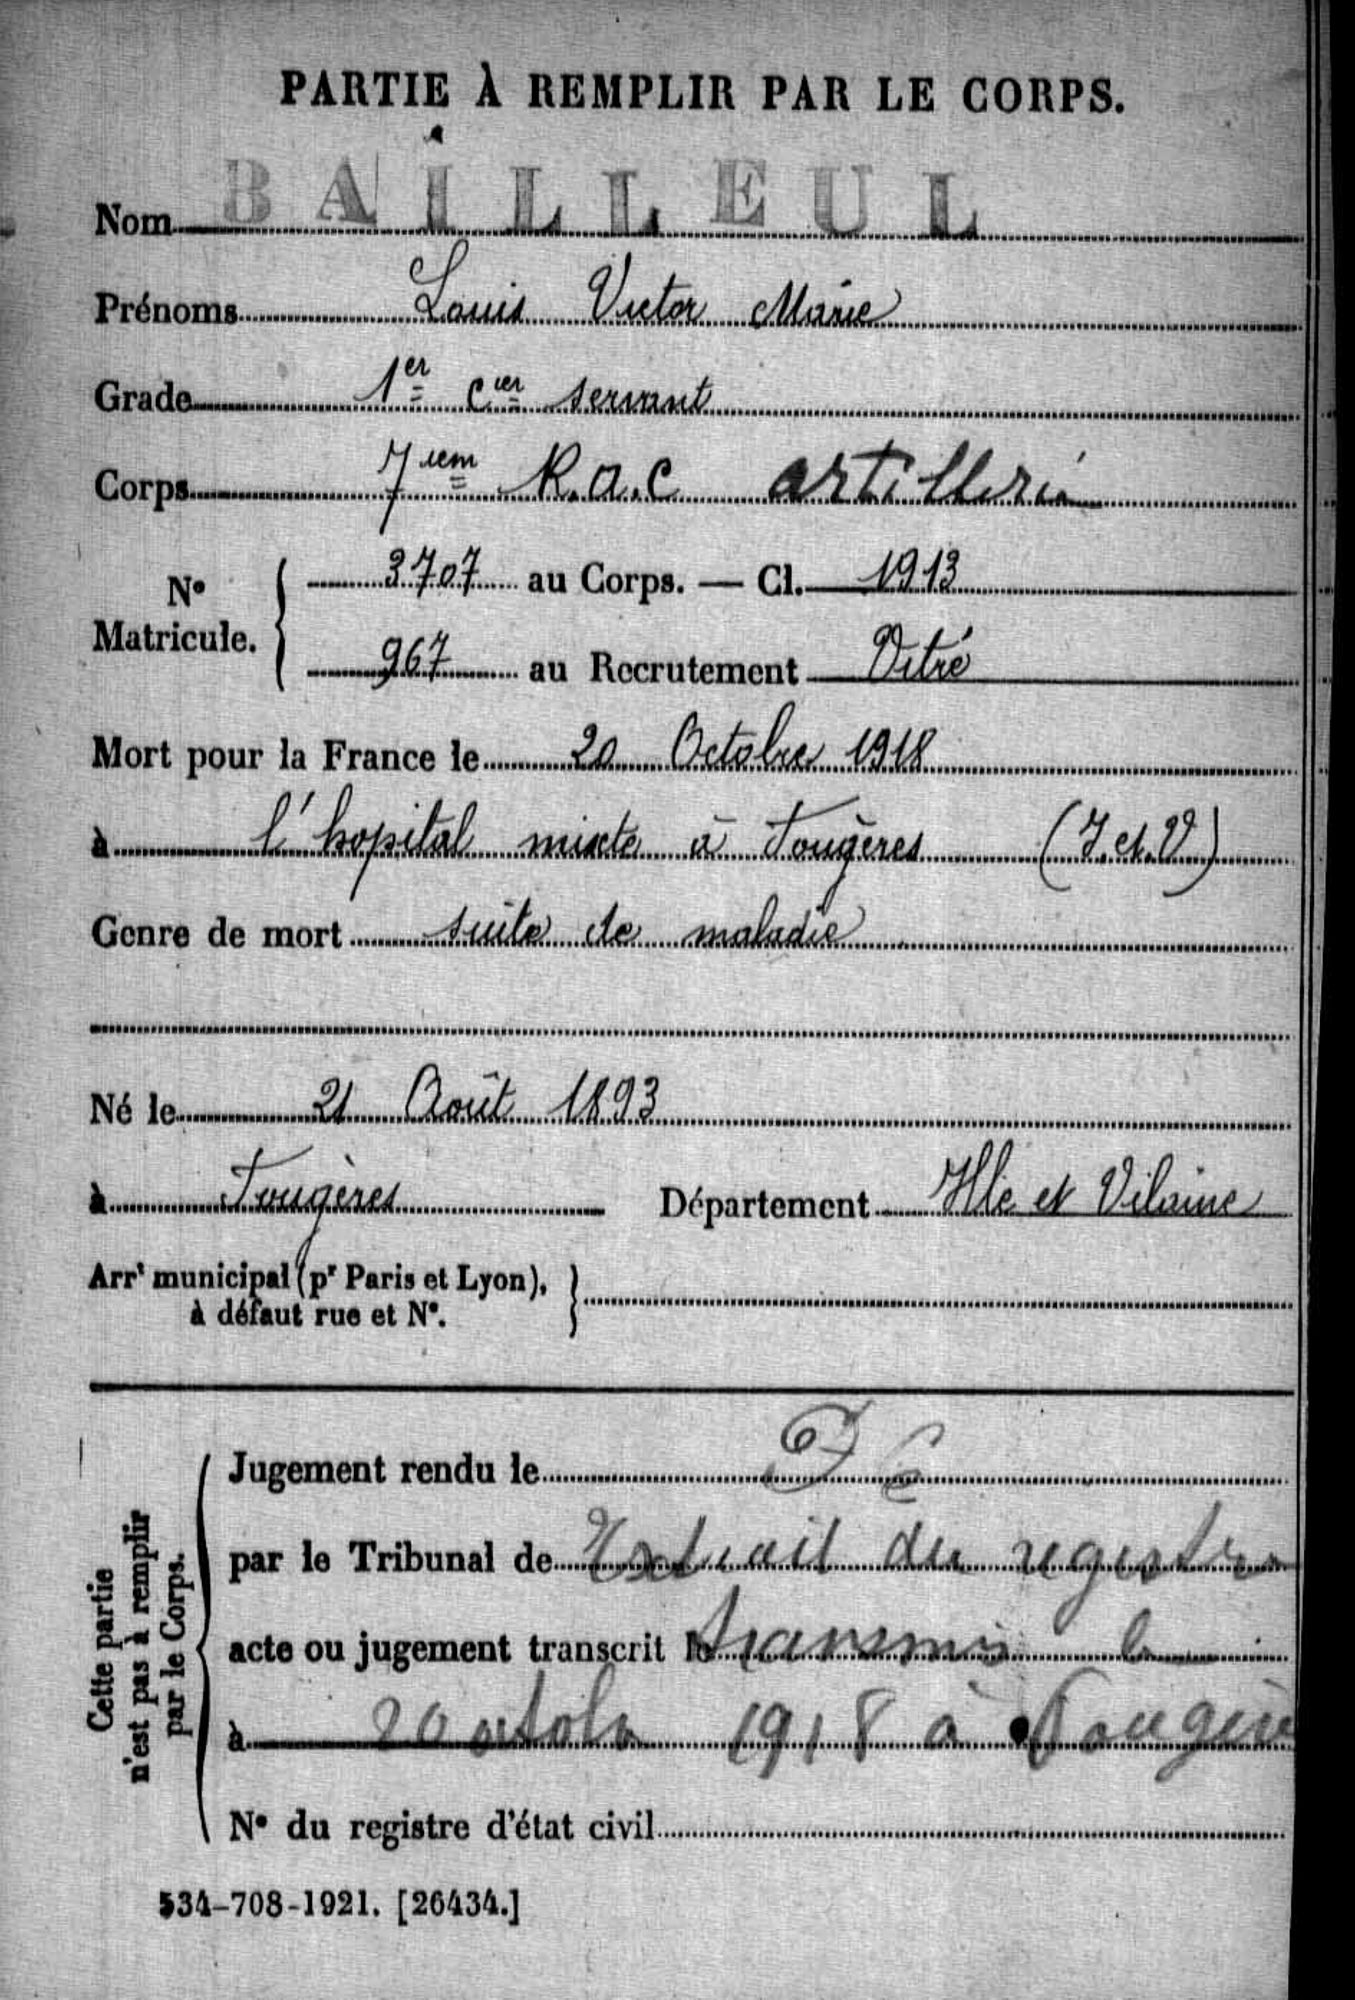 PARTIE À REMPLIR PAR LE CORPS.
Nom BAILLEUL
Prénoms Louis Victor Marie
Grade 1er cer servant
Corps 7iem R.a.c artillerie
No Matricule. 3707 au Corps. — Cl. 1913
967 au Recrutement Vitré
Mort pour la France le 20 Octobre 1918
à l'hopital mixte à Fougères (I.et.V)
Genre de mort suite de maladie
Né le 21 Août 1893
à Fougères Département Ille et Vilaine
Arrt municipal (pr Paris et Lyon),
à défaut rue et No.
Cette partie
n'est pas à remplir
par le Corps.
Jugement rendu le
par le Tribunal de Extrait du registre
acte ou jugement transcrit le transmis le
à 20 octobr 1918 à Fougèr
No du registre d'état civil
534-708-1921. [26434.]